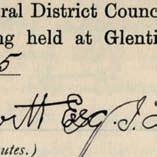 ral District Counc
ng held at Glenti
5
ott Esq. J.
utes.)